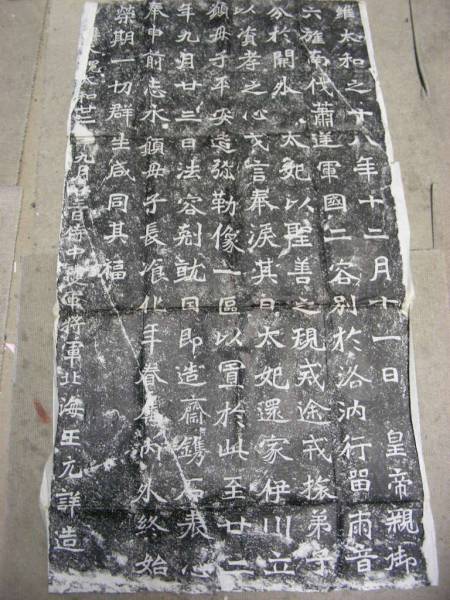 維太和之十八年十二月十一日 皇帝親御
六旌南伐蕭逆軍國二容別於洛汭行留兩音
分於闕外 太妃以聖善之規戒途戎旅弟子
以資孝之心戈言奉淚其日太妃還家伊川立
願母子平安造弥勒像一區以置於此至廿二
年九月廿三日法容剋就因即造齋鐫石表心
奉申前志永願母子長飡化年眷屬內外終始
榮期一切群生咸同其福
太和廿二九月三日侍中護軍將軍北海王元詳造